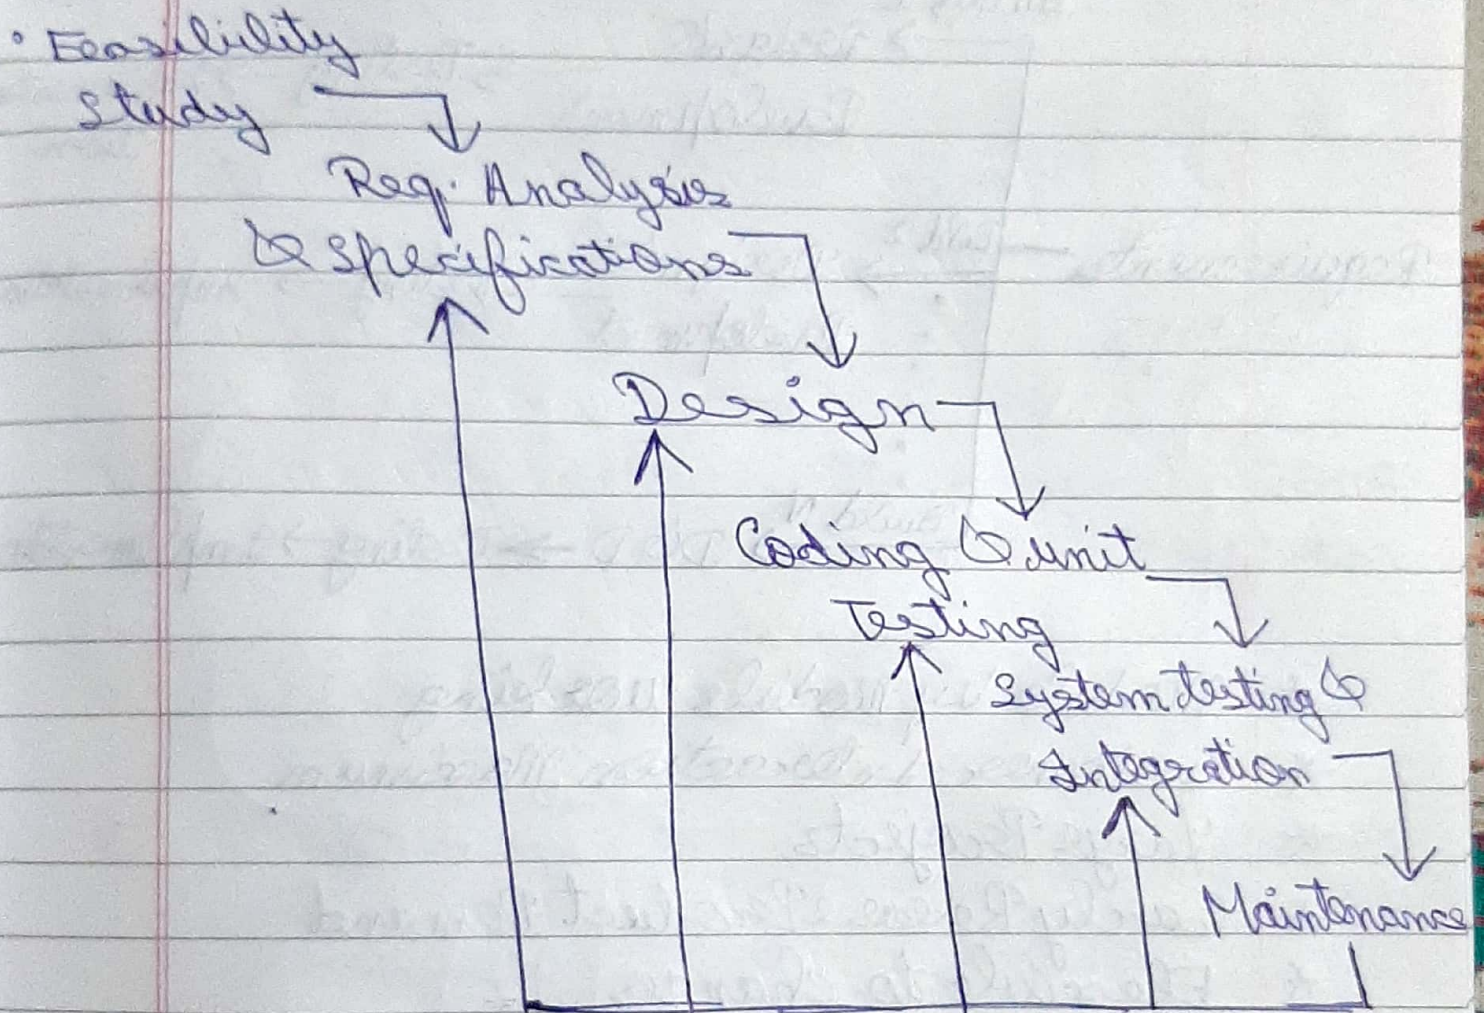 • Feasibility
Study
Req. Analysis
& specifications
Design
Coding & unit
Testing
System testing &
Integration
Maintenance